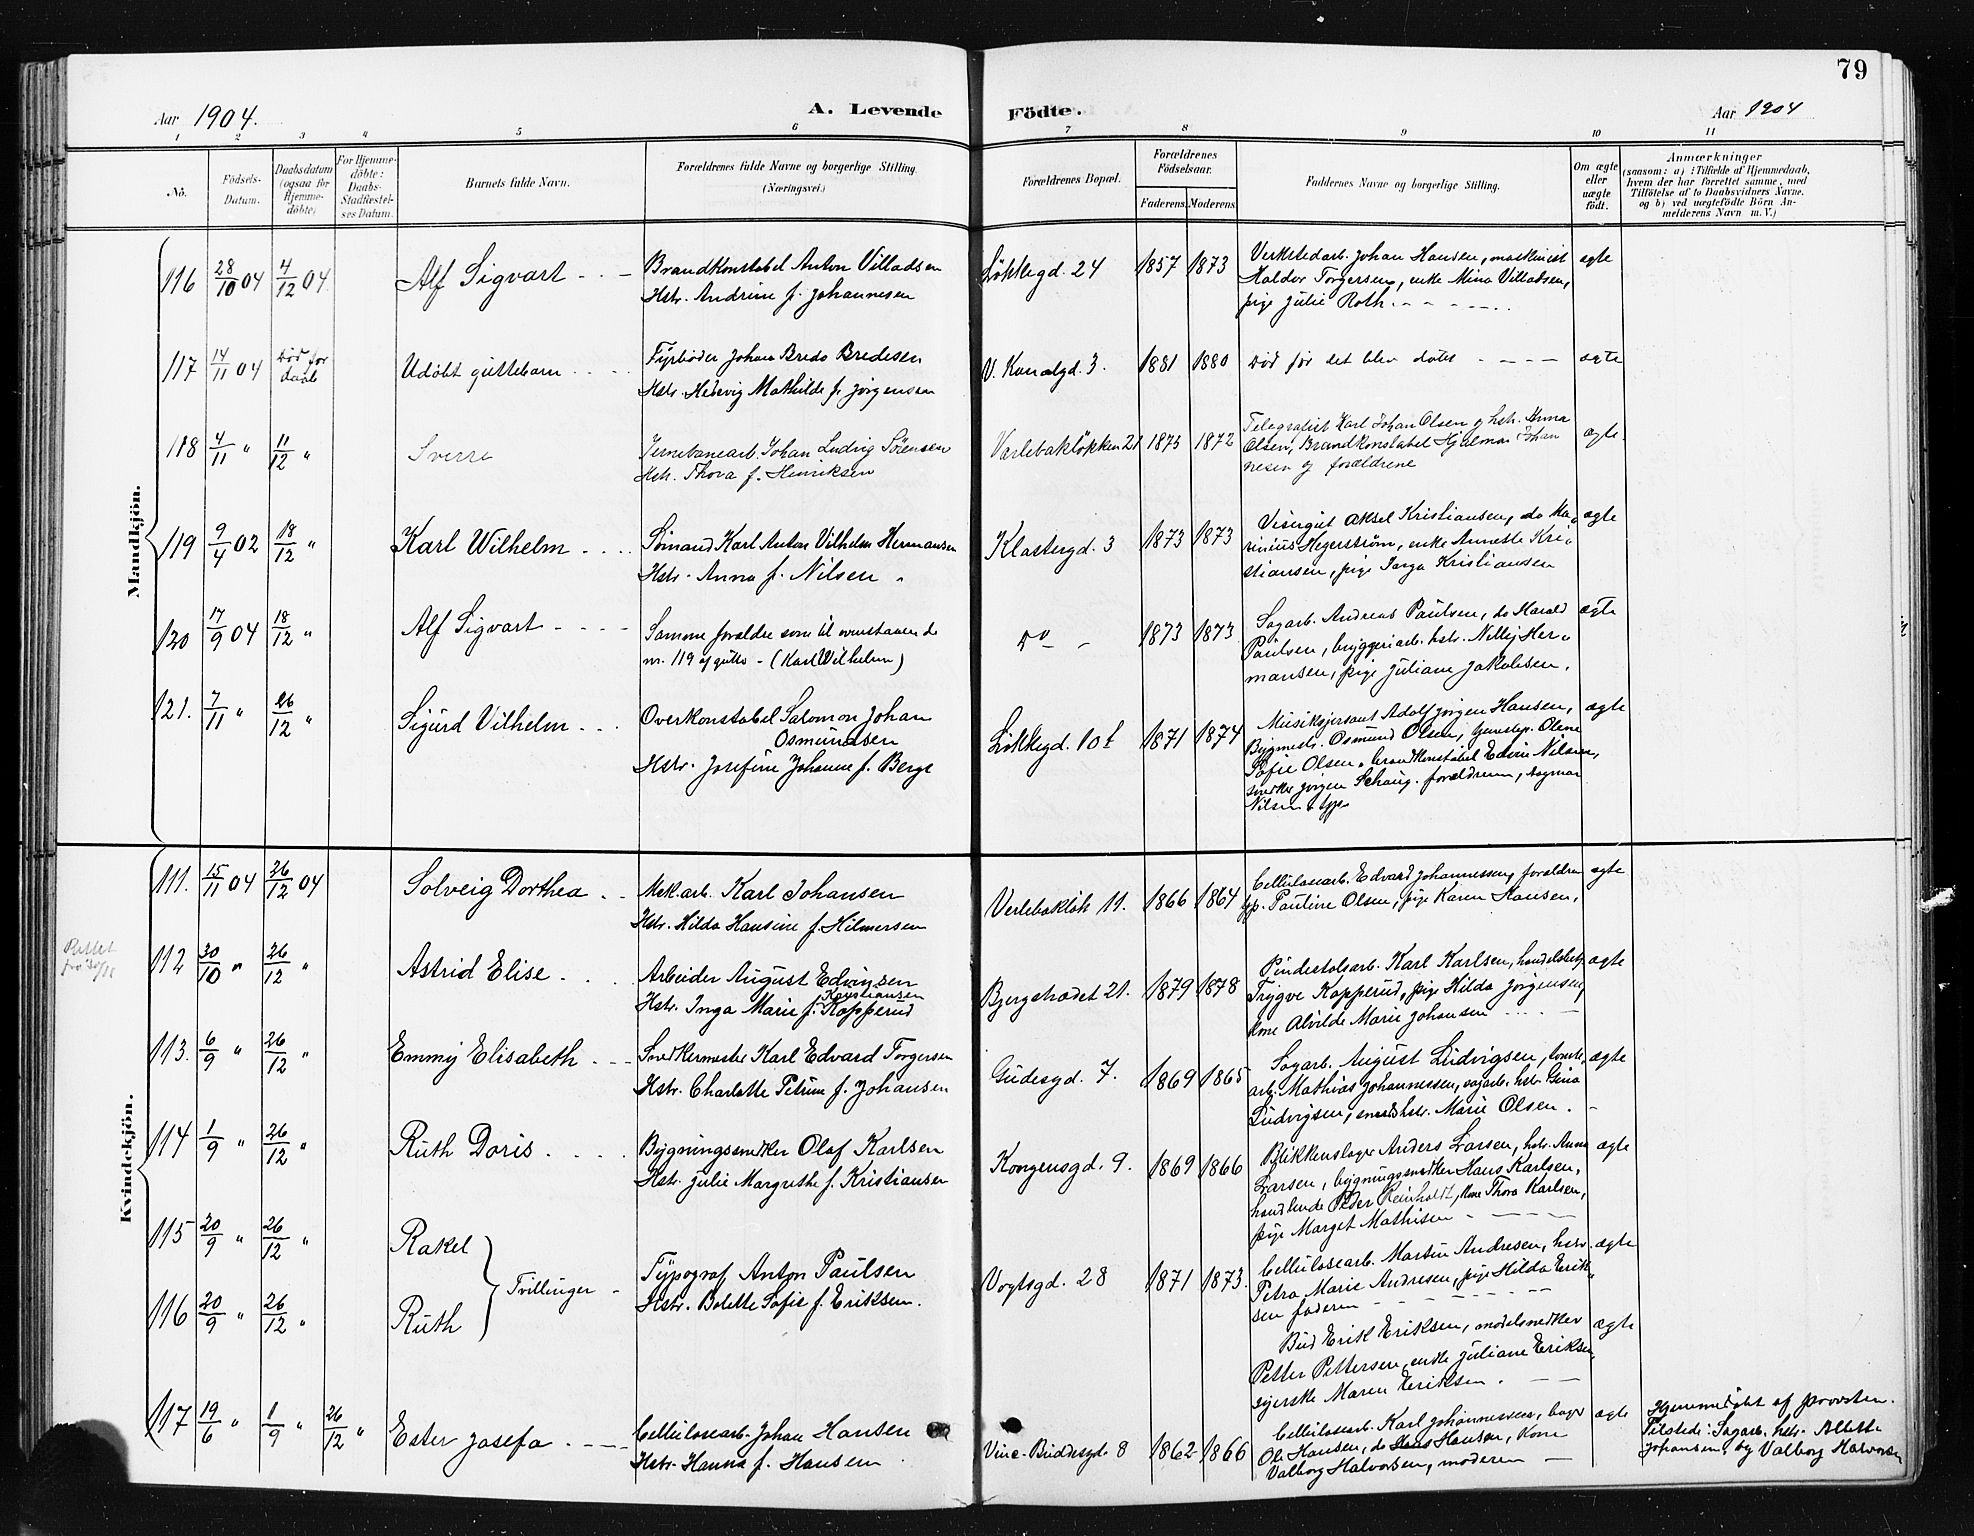 79
Aar 1904.
A. Levende
Födte.
Aar 1904
1 2 3 4 5 6 7 8 9 10 11
No.
Födsels-
Datum.
Daabsdatum
(ogsaa for
Hjemme-
döbte)
For Hjemme-
döbte:
Daabs-
Stadfæstel-
ses Datum.
Barnets fulde Navn.
Forældrenes fulde Navne og borgerlige Stilling.
(Næringsvei.)
Forældrenes Bopæl.
Forældrenes
Födselsaar.
Faderens. Moderens.
Faddernes Navne og borgerlige Stilling.
Om ægte
eller
uægte
födt.
Anmærkninger
(saasom: a) i Tilfælde af Hjemmedaab,
hvem der har forrettet samme, med
Tilföielse af to Daabsvidners Navne.
og b) ved uægtefödte Börn An-
melderens Navn m. V.)
Mandkjön.
116 28/10 04 4/12 04 Alf Sigvart
Brandkonstabel Anton Villadsen
Hstr. Andrine f. Johannesen
Løkkegd. 24 1857 1873
Verkstedarb. Johan Hansen, maskinist
Haldor Torgersen, enke Mina Villadsen,
pige Julie Roth
ægte
117 14/11 04 Død for
daab
Udöbt guttebarn
Fyrböder Johan Bredo Bredesen
Hstr. Hedevig Mathilde f. Jörgensen
V. Kanalgd. 3. 1881 1880
Död för det blev döbt
ægte
118 4/11 " 11/12 " Sverre
Jernebanearb. Johan Ludvig Sörensen
Hstr. Thora f. Henriksen
Varlebakløkken 21 1875 1872
Telegrafist Karl Johan Olsen og hstr. Anna
Olsen, Brandkonstabel Hjalmar Johan
nesen og forældrene
ægte
119 9/4 02 18/12 " Karl Wilhelm
Sömand Karl Anton Vilhelm Hermansen
Hstr. Anna f. Nilsen
Klostergd. 3 1873 1873
Visergut Aksel Kristiansen, do Ma-
rinius Hegerström, enke Annette Kri-
stiansen, pige Inga Kristiansen
ægte
120 17/9 04 18/12 " Alf Sigvart
Samme foreldre som til ovenstaaende
nr. 119 af gutte - (Karl Wilhelm)
Do 1873 1873
Sagarb. Andreas Paulsen, do Harald
Paulsen, bryggeriarb. hstr. Nilly Her-
mansen, pige Juliane Jakobsen.
ægte
121. 7/11 " 26/12 " Sigurd Vilhelm
Overkonstabel Salomon Johan
Osmundsen
Hstr. Josefine Johanne f. Berge
Løkkegd. 10 b 1871 1874
Musiksjersant Adolf Jörgen Hansen,
Bygmestr. Osmund Olsen, Olene
Sofie Olsen, brandkonstabel Edvin Nilsen,
snedker Jörgen Schaug. forældrene, Dagmar
Nilsen
ægte
Kvindekjön.
111. 15/11 04 26/12 04 Solveig Dorthea
Mek.arb. Karl Johansen
Hstr. Hilda Hansine f. Hilmersen
Verlebakløk 11. 1866 1864
Cellulosearb. Edvard Johannessen, forældrene
Pauline Olsen, pige Karen Hansen.
ægte
Rettet
112 30/10 " 26/12 " Astrid Elise
Arbeider August Edvinsen
Kristiansen
Hstr. Inga Marie f. Kopperud
Bjergstrædet 21. 1879 1878
Pindestolsarb. Karl Karlsen, handelsbetj
Trygve Kopperud, pige Hilda Jörgensen,
kone Alvilde Marie Johansen
ægte
113. 6/9 " 26/12 " Emmy Elisabeth
Snedkermester Karl Edvard Torgersen
Hstr. Charlotte Petrine f. Johansen
Gudesgd. 7. 1869 1865
Sagarb. August Ludvigsen, tomte-
arb. Mathias Johannessen, sagarb. hstr. Gina
Ludvigsen, smedshstr. Marie Olsen.
ægte
114 1/9 " 26/12 " Ruth Doris
Bygningssnedker Olaf Karlsen
Hstr. Julie Margrethe f. Kristiansen
Kongensgd. 9. 1869 1866
Blikkenslager Anders Larsen, hstr. Anna
Larsen, bygningssnedker Hans Karlsen,
handlende Peder Reinholdt, kone Thora Karlsen,
pige Marget Mathisen
ægte
115 20/9 " 26/12 " Rakel
116 20/9 " 26/12 " Ruth
Tvillinger
Typograf Anton Paulsen
Hstr. Bolette Sofie f. Eriksen.
Vogtsgd. 28 1871 1873
Cellulosearb. Martin Andresen, hstr.
Petra Marie Andresen, pige Hilda Erik-
sen faderen
ægte
Bud Erik Eriksen, modelsnedker
Petter Pettersen, enke Juliane Eriksen,
syerske Maren Eriksen.
ægte
117 19/6 " 1/9 " 26/12 " Ester Josefa
Cellulosearb. Johan Hansen
Hstr. Hanna f. Hansen
Vine-Buddesgd 8 1862 1866
Cellulosearb. Karl Johannessen, bager
Ole Hansen, do Hans Hansen, Kone
Valborg Halvorsen, moderen
ægte
Hjemmedöbt af provsten.
Tilstede: Sagarb. hstr. Alette
Johansen og Valborg Halvorsen